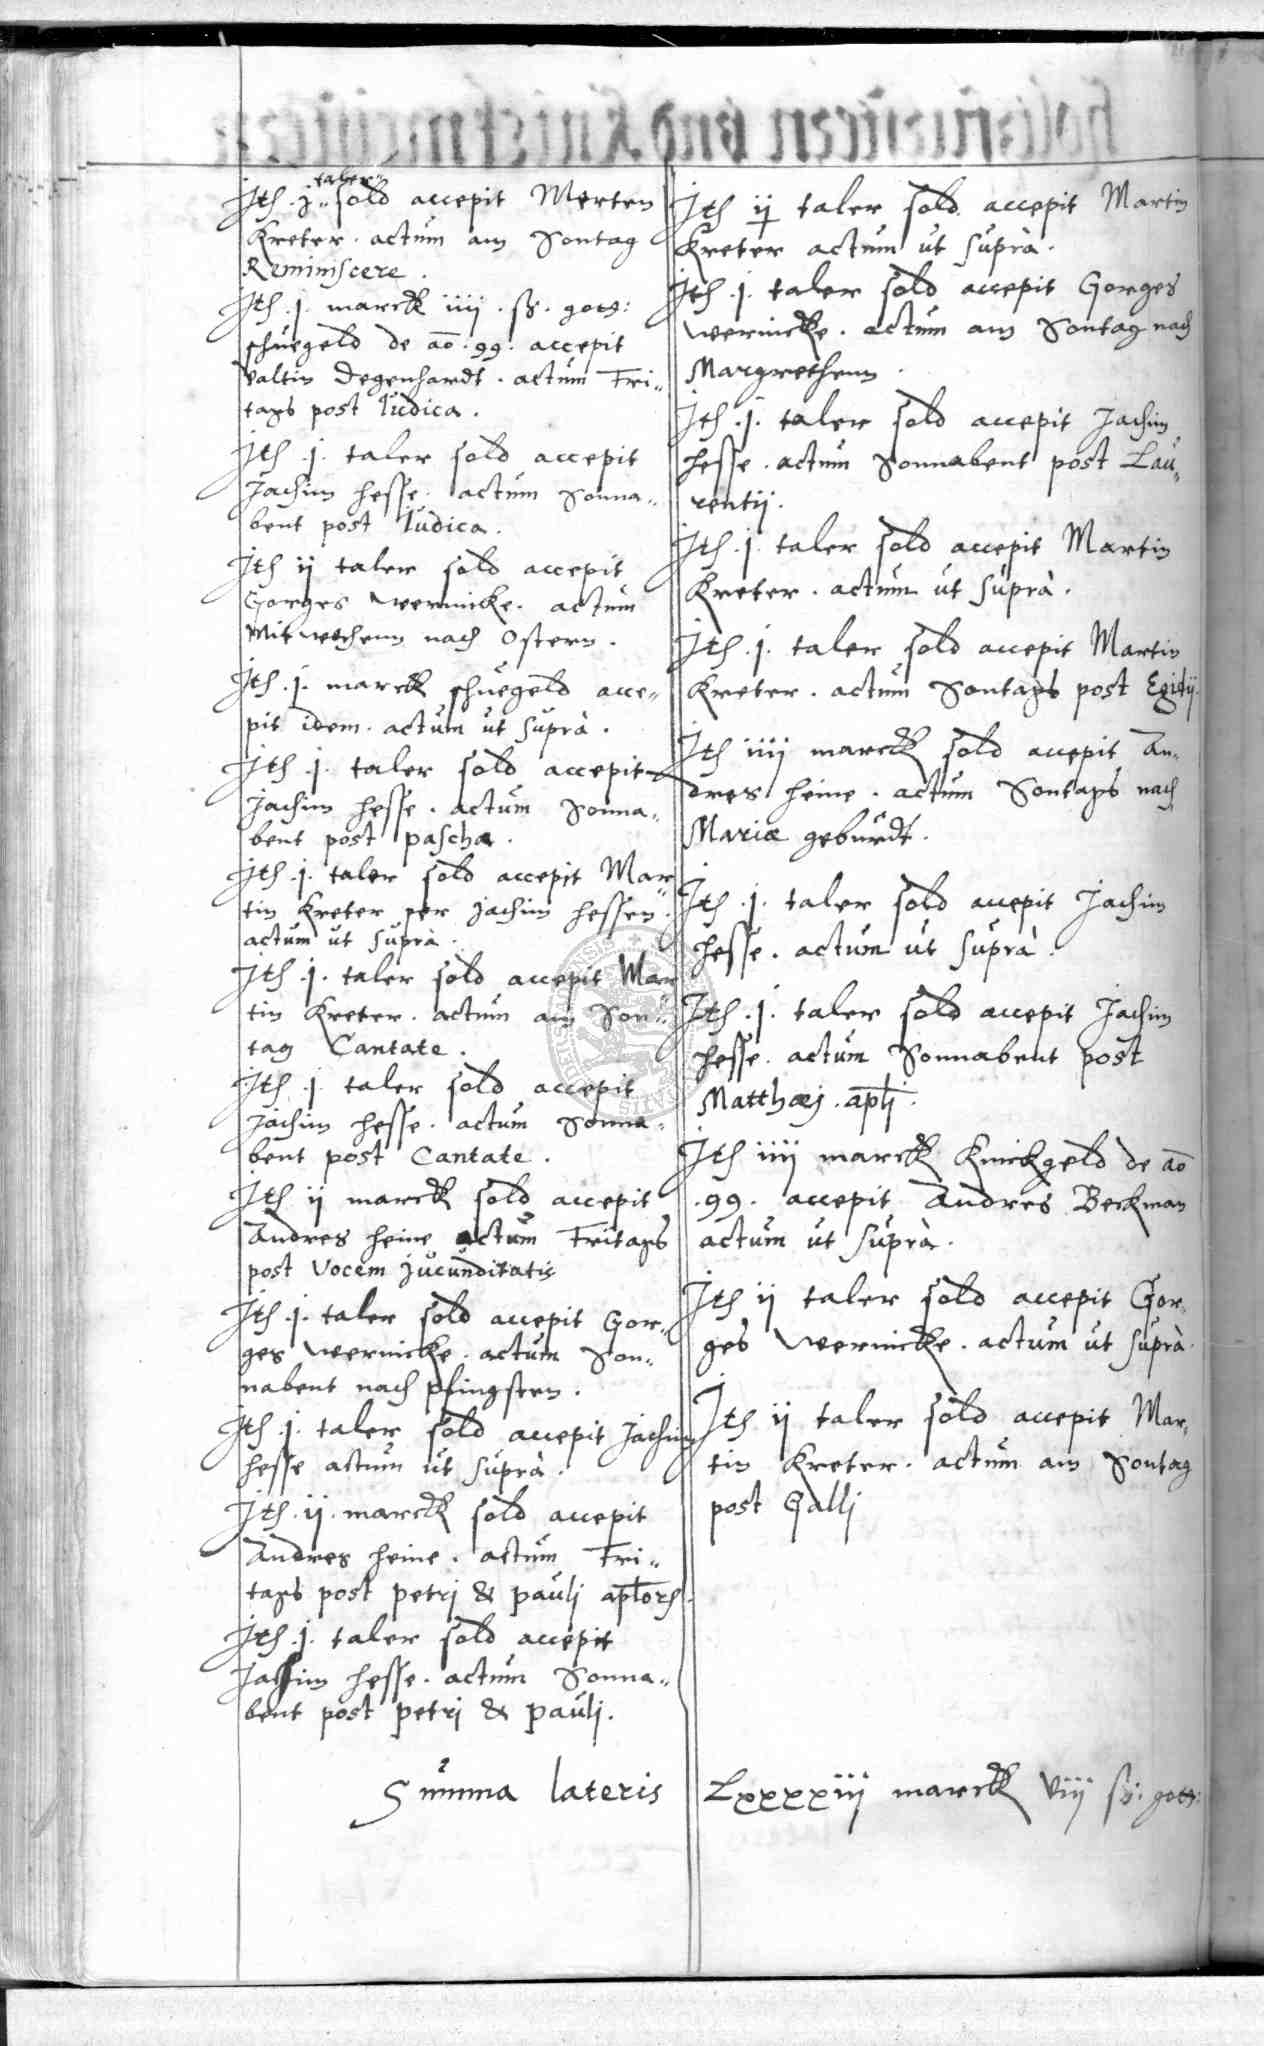 taler
Jtem .j. sold accepit Merten
Kreter . actum am Sontag
Reminiscere .
Jtem .j. marck iiij . sz. gott:
schuegeld de ao . 99 . accepit
Valtin Degenhardt . actum Fri„
tags post Iudica .
Jtem .j. taler sold accepit
Jachim Hesse . actum Sonna„
bent post Iudica .
Jtem ij taler sold accepit
Gorges Wernicke . actum
Mitwochenn nach Ostern .
Jtem .j. marck schuegeld acce„
pit idem . actum ut suprà .
Jtem .j. taler sold accepit
Jachim Hesse . actum Sonna„
bent post pascha .
Jtem .j. taler sold accepit Mar„
tin Kreter per Jachim Hessen .
actum ut suprà .
Jtem .j. taler sold accepit Mar
tin Kreter . actum am Son„
tag Cantate .
Jtem .j. taler sold accepit
Jachim Hesse . actum Sonna„
bent post Cantate .
Jtem ij marck sold accepit
Andres Heine actum Fritags
post Vocem Jucunditatis
Jtem .j. taler sold accepit Gor„
ges Wernicke . actum Son„
nabent nach pfingsten .
Jtem .j. taler sold accepit Jachim
Hesse actum ut suprà .
Jtem . ij . marck sold accepit
Andres Heine . actum Fri„
tags post Petrj & Paulj aptorum .
Jtem .j. taler sold accepit
Jachim Hesse . actum Sonna„
bent post Petrj & Paulj .
Jtem ij taler sold accepit Martin
Kreter actum ut suprà .
Jtem .j. taler sold accepit Gorges
Wernicke . actum am Sontag nach
Margrethenn .
Jtem .j. taler sold accepit Jachim
Hesse . actum Sonnabent post Lau„
rentij .
Jtem .j. taler sold accepit Martin
Kreter . actum ut suprà .
Jtem .j. taler sold accepit Martin
Kreter . actum Sontags post Egidij .
Jtem iiij marck sold accepit An„
dres Heine . actum Sontags nach
Mariæ geburdt .
Jtem .j. taler sold accepit Jachim
Hesse . actum ut suprà .
Jtem .j. taler sold accepit Jachim
Hesse . actum Sonnabent post
Matthæj . aptj .
Jtem iiij marck Knickgeld de ao
. 99 . accepit Andres Beckman
actum ut suprà .
Jtem ij taler sold accepit Gor„
ges Wernicke . actum ut suprà .
Jtem ij taler sold accepit Mar„
tin Kreter . actum am Sontag
post Gallj
Summa lateris Lxxxxiij marck viij sz: gott: